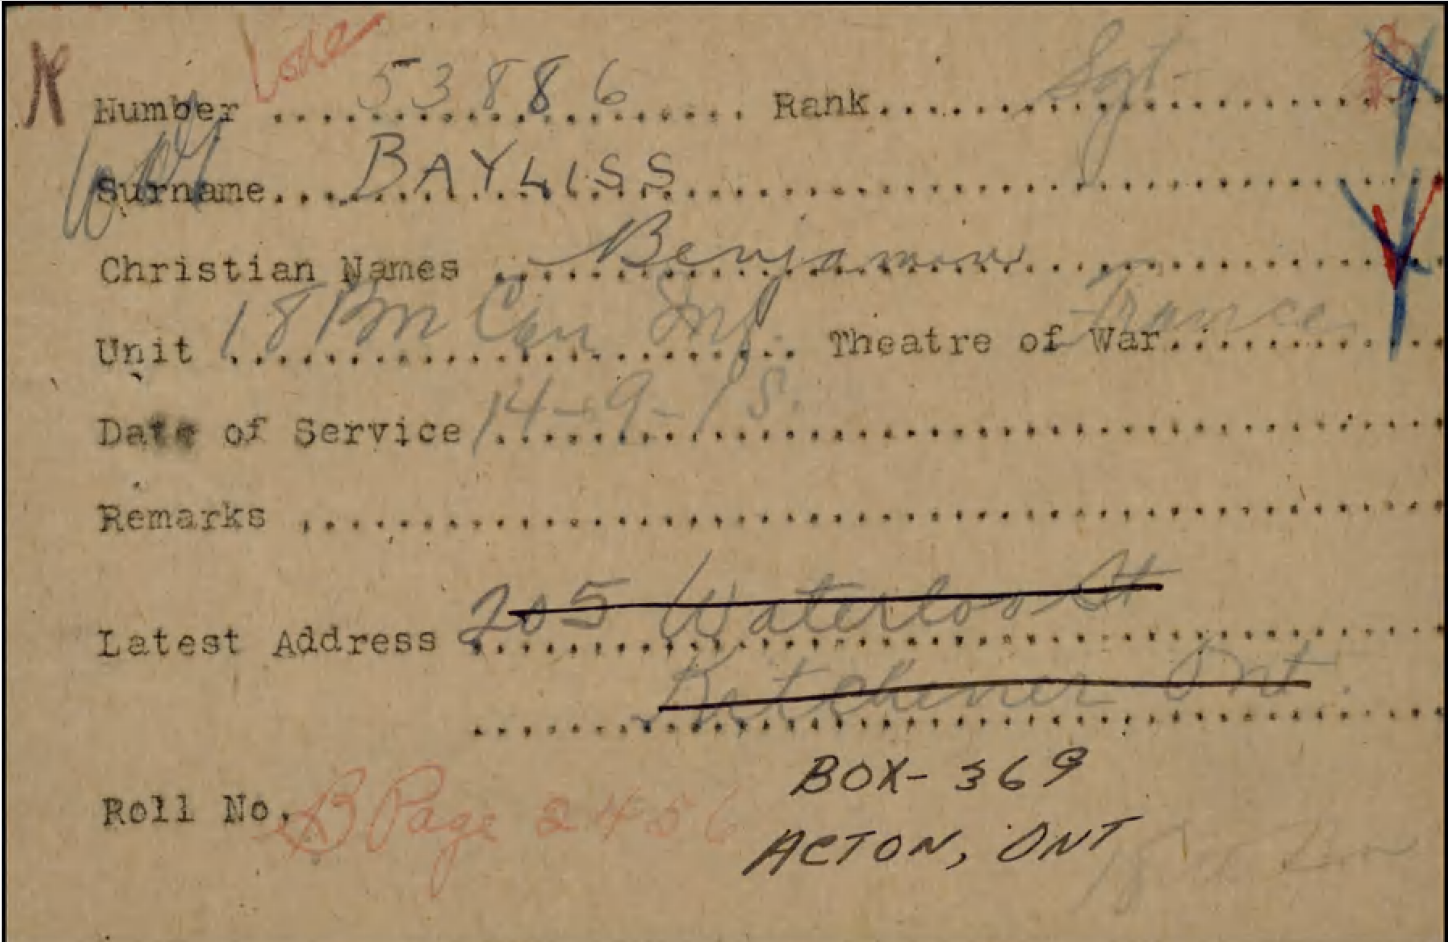 N
Number 53886 Rank Sgt.
Surname BAYLISS
Christian Names Benjamin
Unit 18 Bn Can Inf. Theatre of War France
Date of Service 14-9-15.
Remarks
Latest Address 205 Waterloo St
Kitchener Ont.
Roll No. B Page 2456
BOX-369
ACTON, ONT